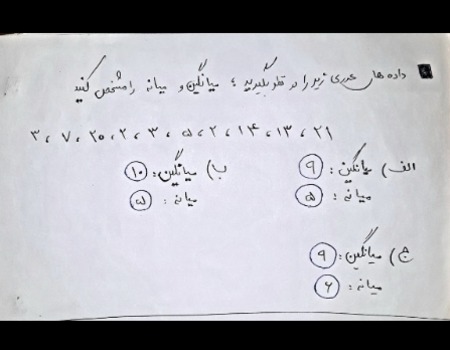 داده های عددی زیر را در نظر بگیرید ؛ میانگین و میانه را مشخص کنید
۳ ، ۷ ، ۲۰ ، ۲ ، ۳ ، ۵ ، ۲ ، ۱۴ ، ۱۳ ، ۲۱
الف) میانگین: ۹
میانه: ۵
ب) میانگین: ۱۰
میانه: ۵
ج) میانگین: ۹
میانه: ۶